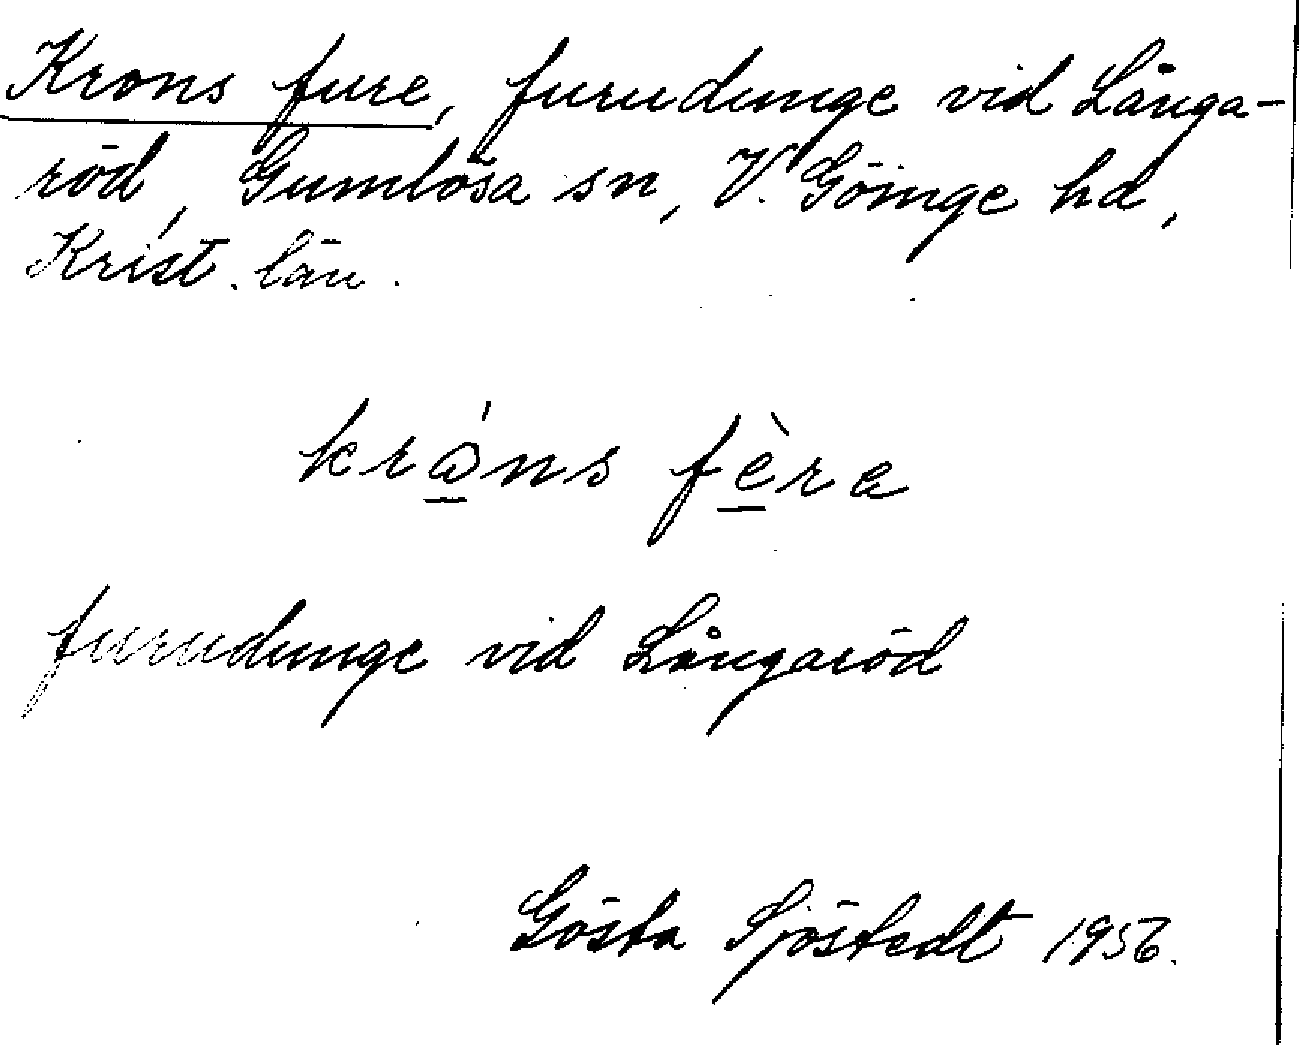 Krons fure, furudunge vid Långa-
röd, Gumlösa sn, V. Göinge hd,
Krist. län.
kråns fèra
furudunge vid Långaröd
Gösta Sjöstedt 1956.